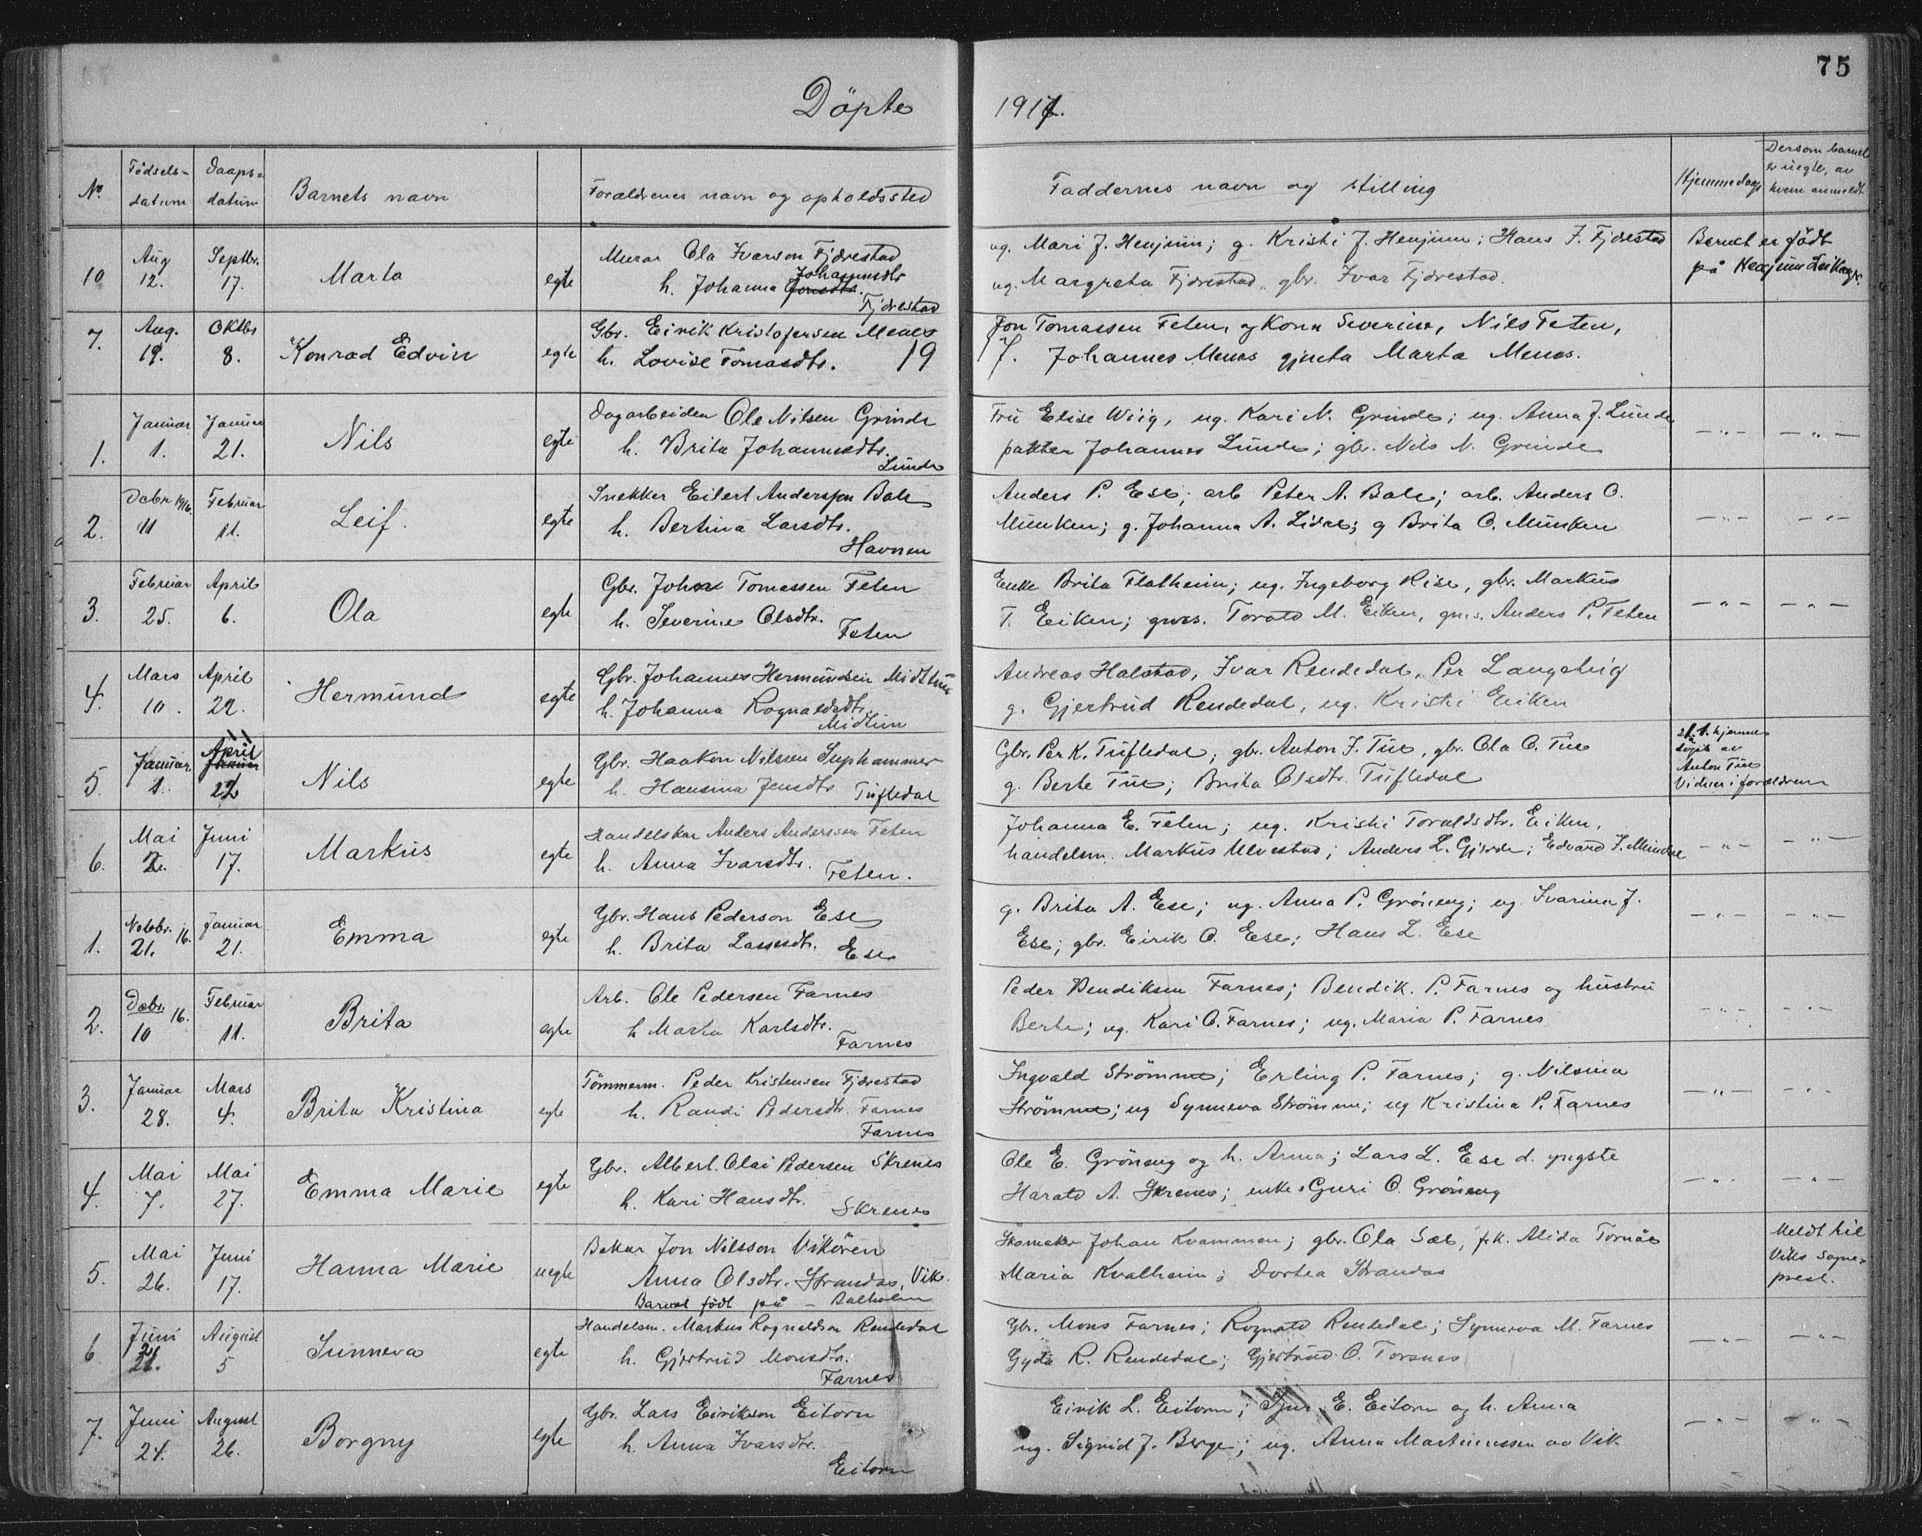 75
Döpte 1917.
No Fødselsdatum Daapsdatum Barnets navn Forældrenes navn og opholdssted Faddernes navn og stilling Hjemmedaap Dersom barnet er uegte, av hvem anmeldt
10 Aug 12. Septbr. 17. Marta egte Murar Ola Ivarson Fjærestad ug. Mari J. Henjum; g. Kristi J. Henjum; Hans J. Fjærestad Barnet er født
h. Johanna Johannesdtr. Fjærestad ug. Margreta Fjærestad, gbr. Ivar Fjærestad. på Henjum Leikanger.
7. Aug. 19. Oktbr 8. Konrad Edvin egte Gbr. Eirik Kristofersen Menes Jon Tomassen Feten, og Kona Severine, Nils Feten,
h. Lovise Tomasdtr. 19 J. Johannes Menes gjenta Marta Menes.
1. Januar 1. Januar 21. Nils egte Dagarbeider Ole Nilsen Grinde Fru Elise Wiig, ug. Kari N. Grinde; ug. Anna J. Lunde
h. Brita Johannesdtr. Lunde pakter Johannes Lunde; gbr. Nils N. Grinde —"— —"—
2. Decbr 1916. 11 Februar 11. Leif. egte Snekker Eilert Anderssen Bale Anders P. Ese; arb. Peter A. Bale; arb. Anders O.
h. Bertina Larsdtr. Havnen Munken; g. Johanna A. Lidal; g Brita O. Munken —"— —"—
3. Februar 25. April 6. Ola egte Gbr. Johan Tomassen Feten Enke Brita Flatheim; ug. Ingeborg Hise, gbr. Markus
h. Severine Olsdtr. Feten T. Eiken; gvos. Torald M. Eiken, gvos. Anders P. Feten —"— —"—
4. Mars 10. April 22. Hermund egte Gbr. Johannes Hermundsen Midttun Andreas Halstad, Ivar Rendedal, Per Langehig
h. Johanna Rognaldsdtr. Midtun g. Gjertrud Rendedal, ug. Kristi Eiken
5. Januar 1. April Januar 22 Nils egte Gbr. Haakon Nilssen Suphammer Gbr. Per K. Tufledal; gbr. Anton J. Tue, gbr. Ola O. Tue 21.1. hjemmedöpt av
h. Hansina Jensdtr. Tufledal g. Berte Tue; Brita Olsdtr. Tufledal Anton Tue Vidner: forældrene
6. Mai 2. Juni 17. Markus egte Handelskar Anders Anderssen Feten Johanna E. Feten; ug. Kristi Toraldsdtr. Eiken,
h. Anna Ivarsdtr. Feten. handelsm. Markus Ulvestad; Anders L. Gjerde; Edvard J. Mundal —"— —"—
1. Novbr. 16. 21. Januar 21. Emma egte Gbr. Hans Pederson Ese g. Brita A. Ese; ug. Anna P. Grøneng; ug Ivarina J.
h. Brita Lassesdtr. Ese Ese; gbr. Eirik O. Ese; Hans L. Ese —"— —"—
2. Decbr. 16. 10 Februar 11. Brita egte Arb. Ole Pedersen Farnes Peder Bendiksen Farnes; Bendik. P. Farnes og hustru
h Marta Karlsdtr. Farnes Berte; ug. Kari O. Farnes; ug. Maria P. Farnes —"— —"—
3. Januar 28. Mars 4. Brita Kristina egte Tömmerm. Peder Kristensen Fjærestad Ingvald Strømme; Erling P. Farnes; g. Nilsina
h. Randi Pedersdtr. Farnes Farnes Strømme; ug Synneva Strømme; ug Kristina P. Farnes —"— —"—
4. Mai 7. Mai 27. Emma Marie egte Gbr. Albert. Olai Pedersen Skrenes Ole E. Grøneng og h. Anna; Lars L. Ese d. yngste
h. Kari Hansdtr. Skrenes Harald A. Skrenes; enke Guri O. Grøneng —"— —"—
5. Mai 26. Juni 17. Hanna Marie uegte Bakar Jon Nilsson Vikören Skomaker Johan Kvammen; gbr. Ola Sæl, frk. Alida Tornås Meldt til
Anna Olsdtr. Strandas, Vik. Maria Kvalheim; Dortea Strandas Viks sogneprest.
Barnet født på — Balholm
6 Juni 21. August 5 Sunneva egte Handelsm. Markus Rognaldson Rendedal Gbr. Mons Farnes; Rognald Rendedal; Synneva M. Farnes
h. Gjertrud Monsdtr. Farnes Gyda R. Rendedal; Gjertrud O. Torsnes —"— —"—
7. Juni 24. August 26. Borgny egte Gbr. Lars Eirikson Eitorn Eirik L. Eitorn; Sjur E. Eitorn og h. Anna
h. Anna Ivarsdtr. Eitorn ug. Sigrid J. Berge; ug. Anna Martinussen av Vik —"— —"—